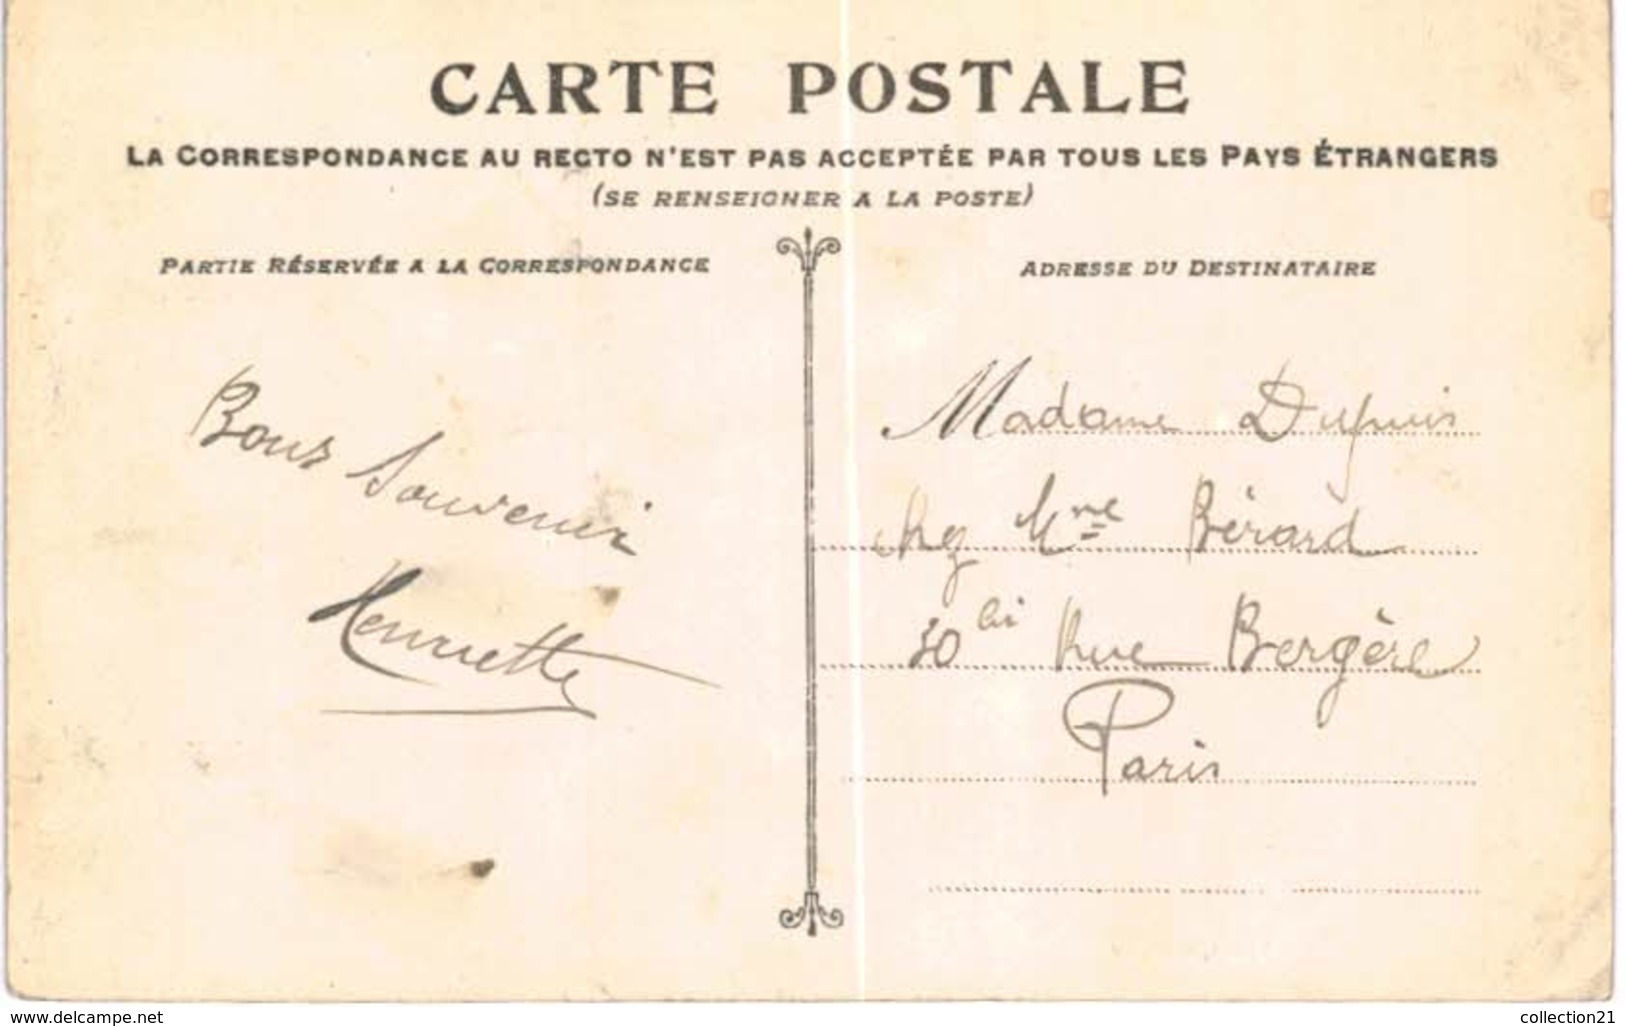 CARTE POSTALE
LA CORRESPONDANCE AU RECTO N'EST PAS ACCEPTÉE PAR TOUS LES PAYS ÉTRANGERS
(SE RENSEIGNER A LA POSTE)
PARTIE RÉSERVÉE A LA CORRESPONDANCE
Bons Souvenir
Henriette
ADRESSE DU DESTINATAIRE
Madame Dupuis
chez Mme Bérard
30 bis Rue Bergère
Paris
www.delcampe.net
collection21